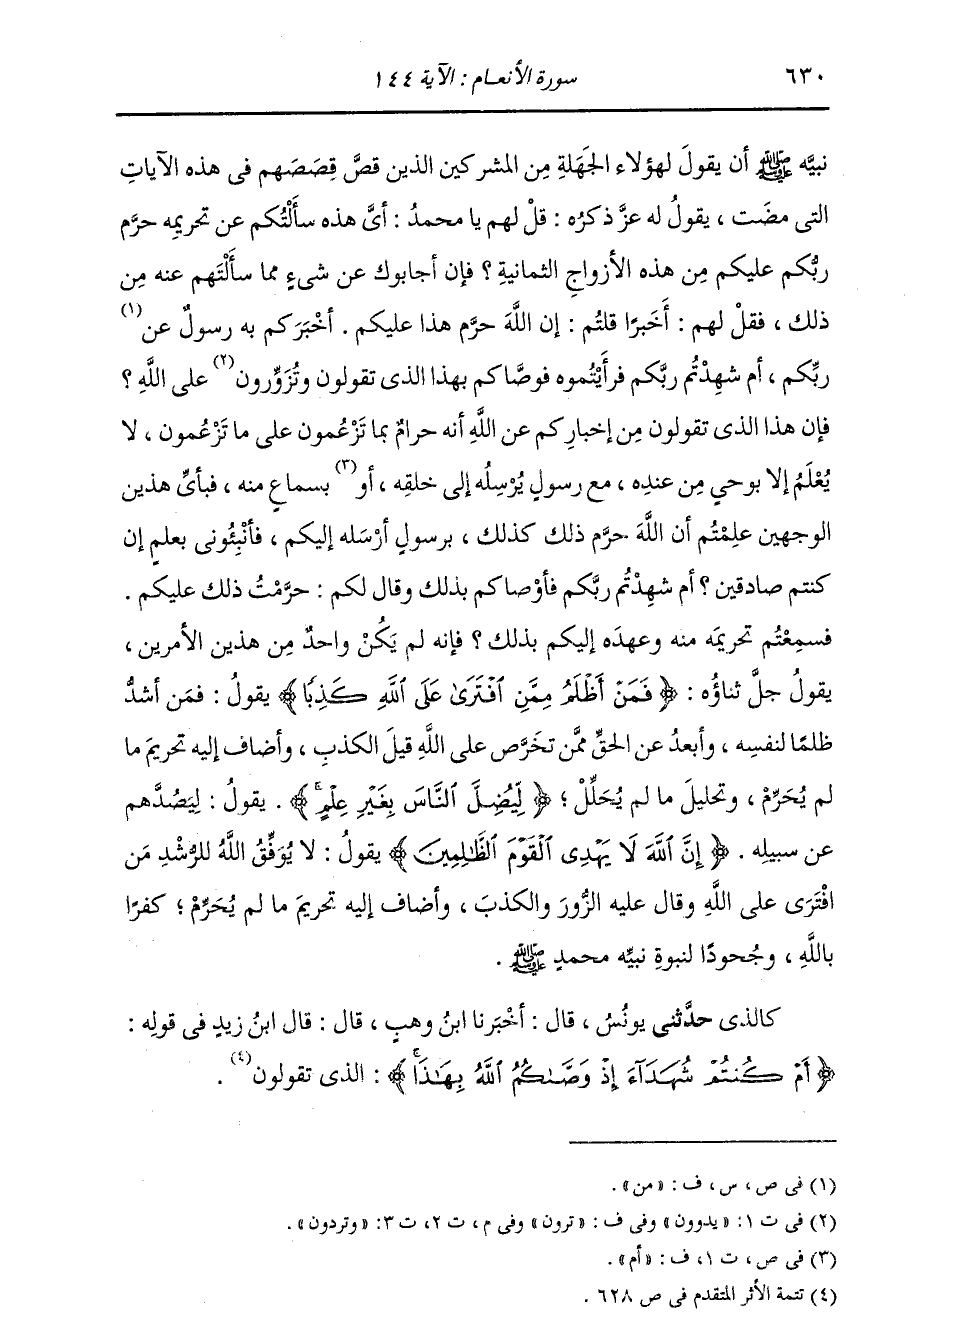 ٦٣٠ سورة الأنعام : الآية ١٤٤
نبيَّه ﷺ أن يقولَ لهؤلاء الجَهَلةِ مِن المشركين الذين قصَّ قِصَصَهم فى هذه الآياتِ
التى مضَت ، يقولُ له عزَّ ذكرُه : قلْ لهم يا محمدُ : أىَّ هذه سأَلْتُكم عن تحريمِه حرَّم
ربُّكم عليكم مِن هذه الأزواجِ الثمانيةِ ؟ فإن أجابوك عن شىءٍ مما سأَلْتَهم عنه مِن
ذلك ، فقلْ لهم : أَخَبرًا قلتُم : إن اللَّهَ حرَّم هذا عليكم . أخْبَرَكم به رسولٌ عن(١)
ربِّكم ، أم شهِدْتُم ربَّكم فرأَيْتُموه فوصَّاكم بهذا الذى تقولون وتُزَوِّرون(٢) على اللَّهِ ؟
فإن هذا الذى تقولون مِن إخبارِكم عن اللَّهِ أنه حرامٌ بما تَزْعُمون على ما تَزْعُمون ، لا
يُعْلَمُ إلا بوحيٍ مِن عندِه ، مع رسولٍ يُرْسِلُه إلى خلقِه ، أو(٣) بسماعٍ منه ، فبأىِّ هذين
الوجهين علِمْتُم أن اللَّهَ حرَّم ذلك كذلك ، برسولٍ أرْسَله إليكم ، فأنْبِئُونى بعلمٍ إن
كنتم صادقين ؟ أم شهِدْتُم ربَّكم فأوْصاكم بذلك وقال لكم : حرَّمْتُ ذلك عليكم .
فسمِعْتُم تحريمَه منه وعهدَه إليكم بذلك ؟ فإنه لم يَكُنْ واحدٌ مِن هذين الأمرين ،
يقولُ جلَّ ثناؤُه : ﴿ فَمَنْ أَظْلَمُ مِمَّنِ ٱفْتَرَىٰ عَلَى ٱللَّهِ كَذِبًا ﴾ يقولُ : فمَن أشدُّ
ظلمًا لنفسِه ، وأبعدُ عن الحقِّ ممَّن تخَرَّص على اللَّهِ قيلَ الكذبِ ، وأضاف إليه تحريمَ ما
لم يُحَرِّمْ ، وتحليلَ ما لم يُحَلِّلْ ؛ ﴿ لِيُضِلَّ ٱلنَّاسَ بِغَيْرِ عِلْمٍ ﴾ . يقولُ : لِيَصُدَّهم
عن سبيلِه . ﴿ إِنَّ ٱللَّهَ لَا يَهْدِى ٱلْقَوْمَ ٱلظَّٰلِمِينَ ﴾ يقولُ : لا يُوَفِّقُ اللَّهُ للرُّشْدِ مَن
افْتَرَى على اللَّهِ وقال عليه الزُّورَ والكذبَ ، وأضاف إليه تحريمَ ما لم يُحَرِّمْ ؛ كفرًا
باللَّهِ ، وجُحودًا لنبوةِ نبيِّه محمدٍ ﷺ .
كالذى حدَّثنى يونُسُ ، قال : أخْبَرنا ابنُ وهبٍ ، قال : قال ابنُ زيدٍ فى قولِه :
﴿ أَمْ كُنتُمْ شُهَدَآءَ إِذْ وَصَّىٰكُمُ ٱللَّهُ بِهَٰذَا ﴾ : الذى تقولون(٤) .
(١) فى ص ، س ، ف : « من » .
(٢) فى ت ١ : « يدوون » وفى ف : « ترون » وفى م ، ت ٢ ، ت ٣ : « وتردون » .
(٣) فى ص ، ت ١ ، ف : « أم » .
(٤) تتمة الأثر المتقدم فى ص ٦٢٨ .